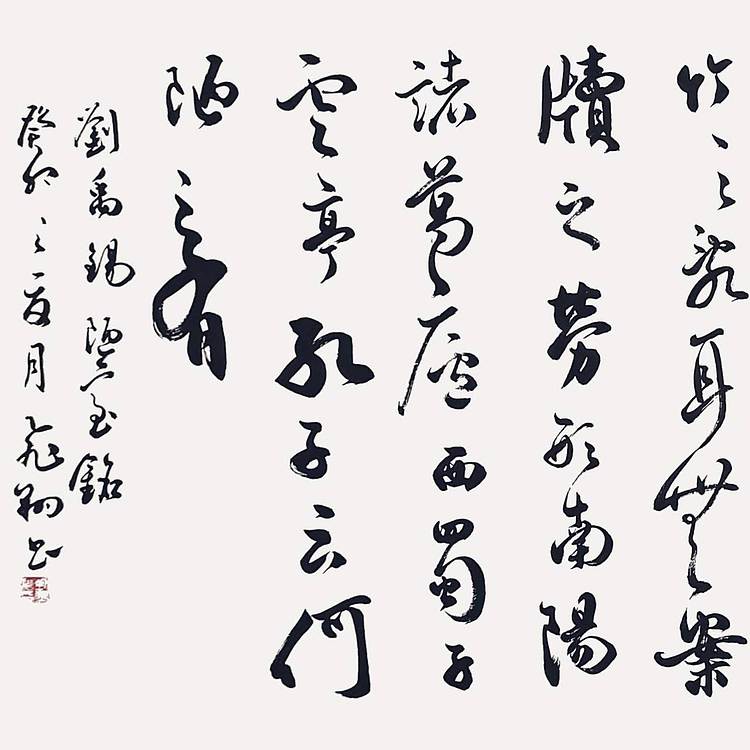 竹之亂耳無案
牘之勞形南陽
諸葛廬西蜀子
雲亭孔子云何
陋之有
劉禹錫陋室銘
癸卯之夏月飛翔书